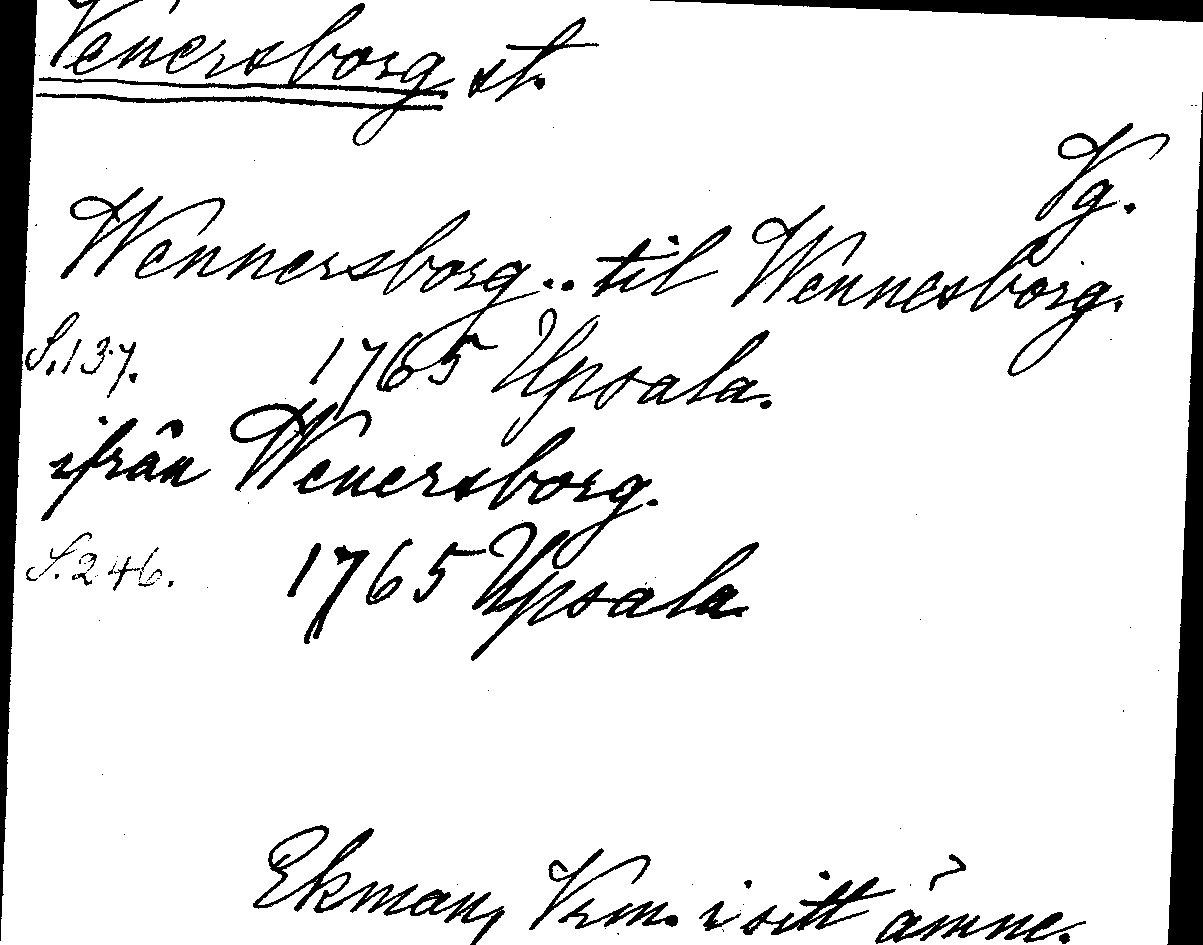 Venersborg st.
Vg.
Wennersborg.. til Wennesborg.
S.137. 1765 Upsala.
ifrån Wenersborg.
S.246. 1765 Upsala.
Ekman, Vrm. i sitt ämne.